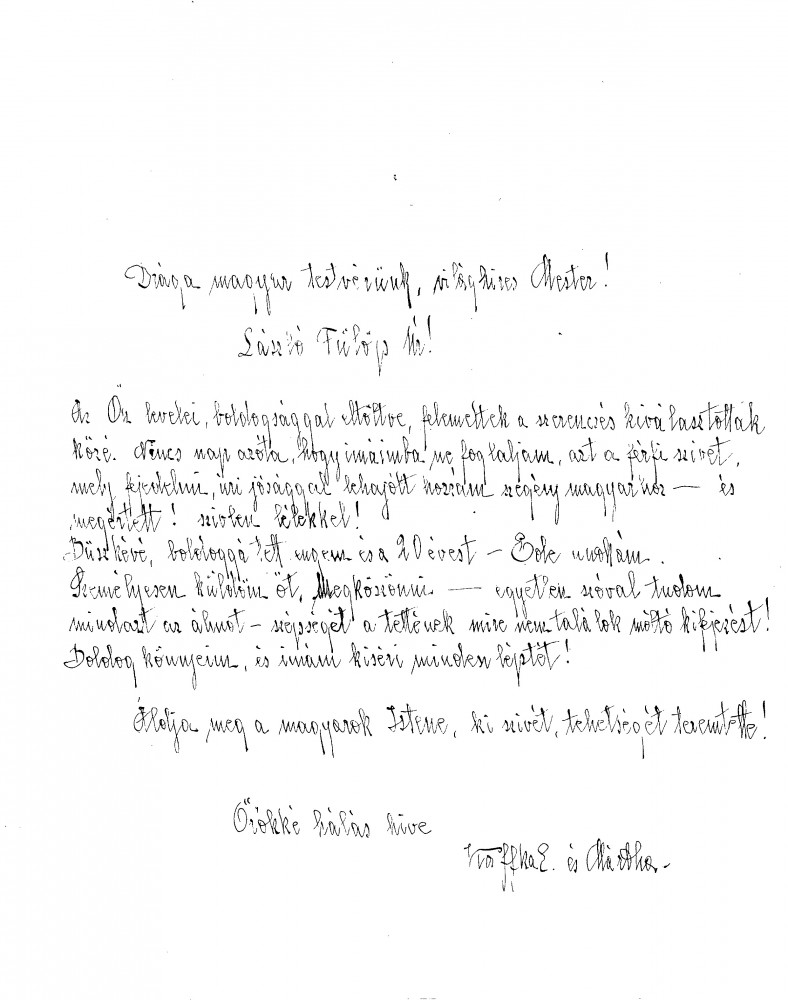 Drága magyar testvérünk, világhíres Mester!
László Fülöp Úr!
Az Ön levelei, boldogsággal eltöltve, felemeltek a szerencsés kiválasztottak
közé. Nincs nap azóta, hogy imáimba ne foglaljam, azt a férfi szivet,
mely fejedelmi, úri jósággal lehajolt hozzám szegény magyarhoz — és
megértett! szivben lélekkel!
Büszkévé, boldoggá tett engem és a 20 évest – unokám.
Személyesen küldöm őt, Megköszönni — egyetlen szóval tudom
mindazt az álmot – szépségét a tettének mire nem találok méltó kifejezést!
Boldog könnyeim, és imám kiséri minden léptét!
Áldja meg a magyarok Istene, ki szivét, tehetségét teremtette!
Örökké hálás hive
E. és Mártha